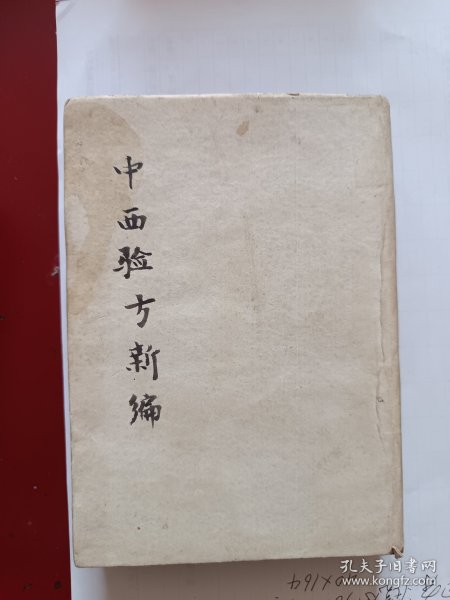 中西验方新编
孔夫子旧书网
www.kongfz.com